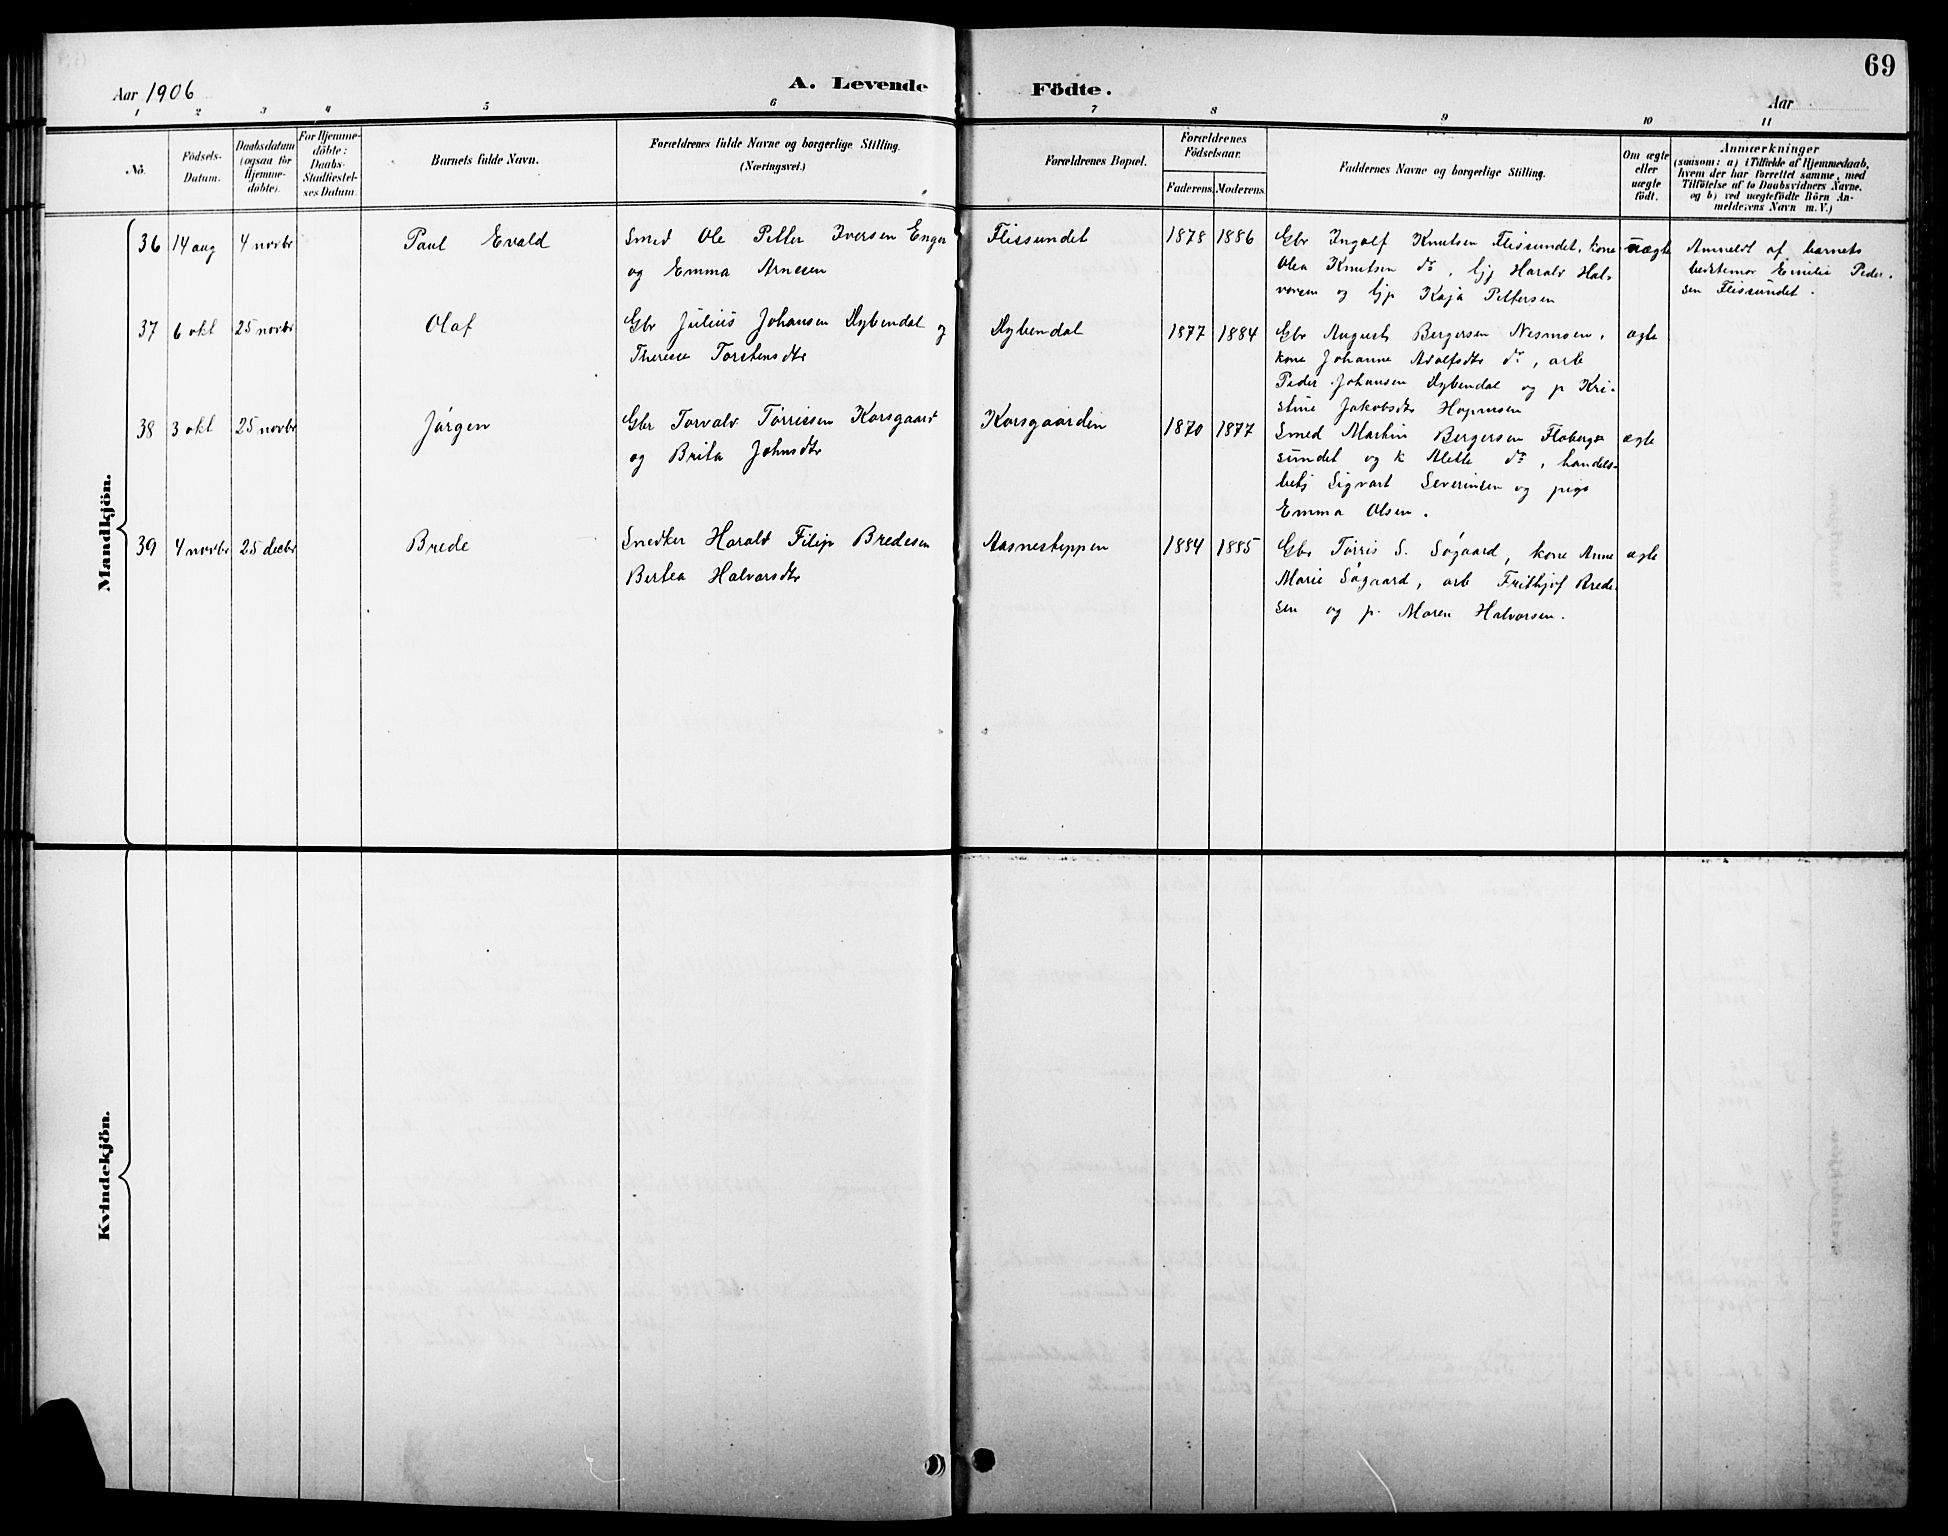 69
Aar 1906
A. Levende Födte.
Aar
1 2 3 4 5 6 7 8 9 10 11
No.
Födsels-
Datum.
Daabsdatum
(ogsaa for
Hjemme-
döbte).
For Hjemme-
döbte:
Daabs-
Stadfæstel-
ses Datum.
Barnets fulde Navn.
Forældrenes fulde Navne og borgerlige Stilling.
(Næringsvei.)
Forældrenes Bopæl.
Forældrenes
Födselsaar.
Faderens. Moderens.
Faddernes Navne og borgerlige Stilling.
Om ægte
eller
uægte
födt.
Anmærkninger
(saasom: a) i Tilfælde af Hjemmedaab,
hvem der har forrettet samme, med
Tilföielse af to Daabsvidners Navne,
og b) ved uægtefödte Börn An-
melderens Navn m. V.)
Mandkjön.
36 14 aug 4 novbr Paul Evald
Smed Ole Petter Iversen Enger
og Emma Arnesen
Flissundet 1878 1886
Gbr Ingolf Knutsen Flissundet, kone
Olea Knutsen do, Gjp Harald Hal-
vorsen og Gjp Kaja Pettersen
uægte
Anmeldt af barnets
bedstemor Emilie Peder-
sen Flissundet.
37 6 okt 25 novbr Olaf
Gbr Julius Johansen Dybendal og
Therese Torstensdtr
Dybendal 1877 1884
Gbr August Bergersen Nesmoen,
kone Johanne Adolfsdtr do, arb
Peder Johansen Dybendal og p Kri-
stine Jakobsdtr Hopmoen
ægte
38 3 okt 25 novbr Jørgen
Gbr Torvald Tørrissen Korsgaard
og Brita Johnsdtr
Korsgaarden 1870 1877
Smed Martin Bergersen Floberg-
sundet og k Alette do, handels-
betj Sigvart Severinsen og pige
Emma Olsen.
ægte
39 4 novbr 25 decbr Brede
Snedker Harald Filip Bredesen
Bertea Halvorsdtr
Aasnesteppen 1884 1885
Gbr Tørris S. Søgaard, kone Anne
Marie Søgaard, arb Frithjof Brede-
sen og p. Maren Halvorsen.
ægte
Kvindekjön.